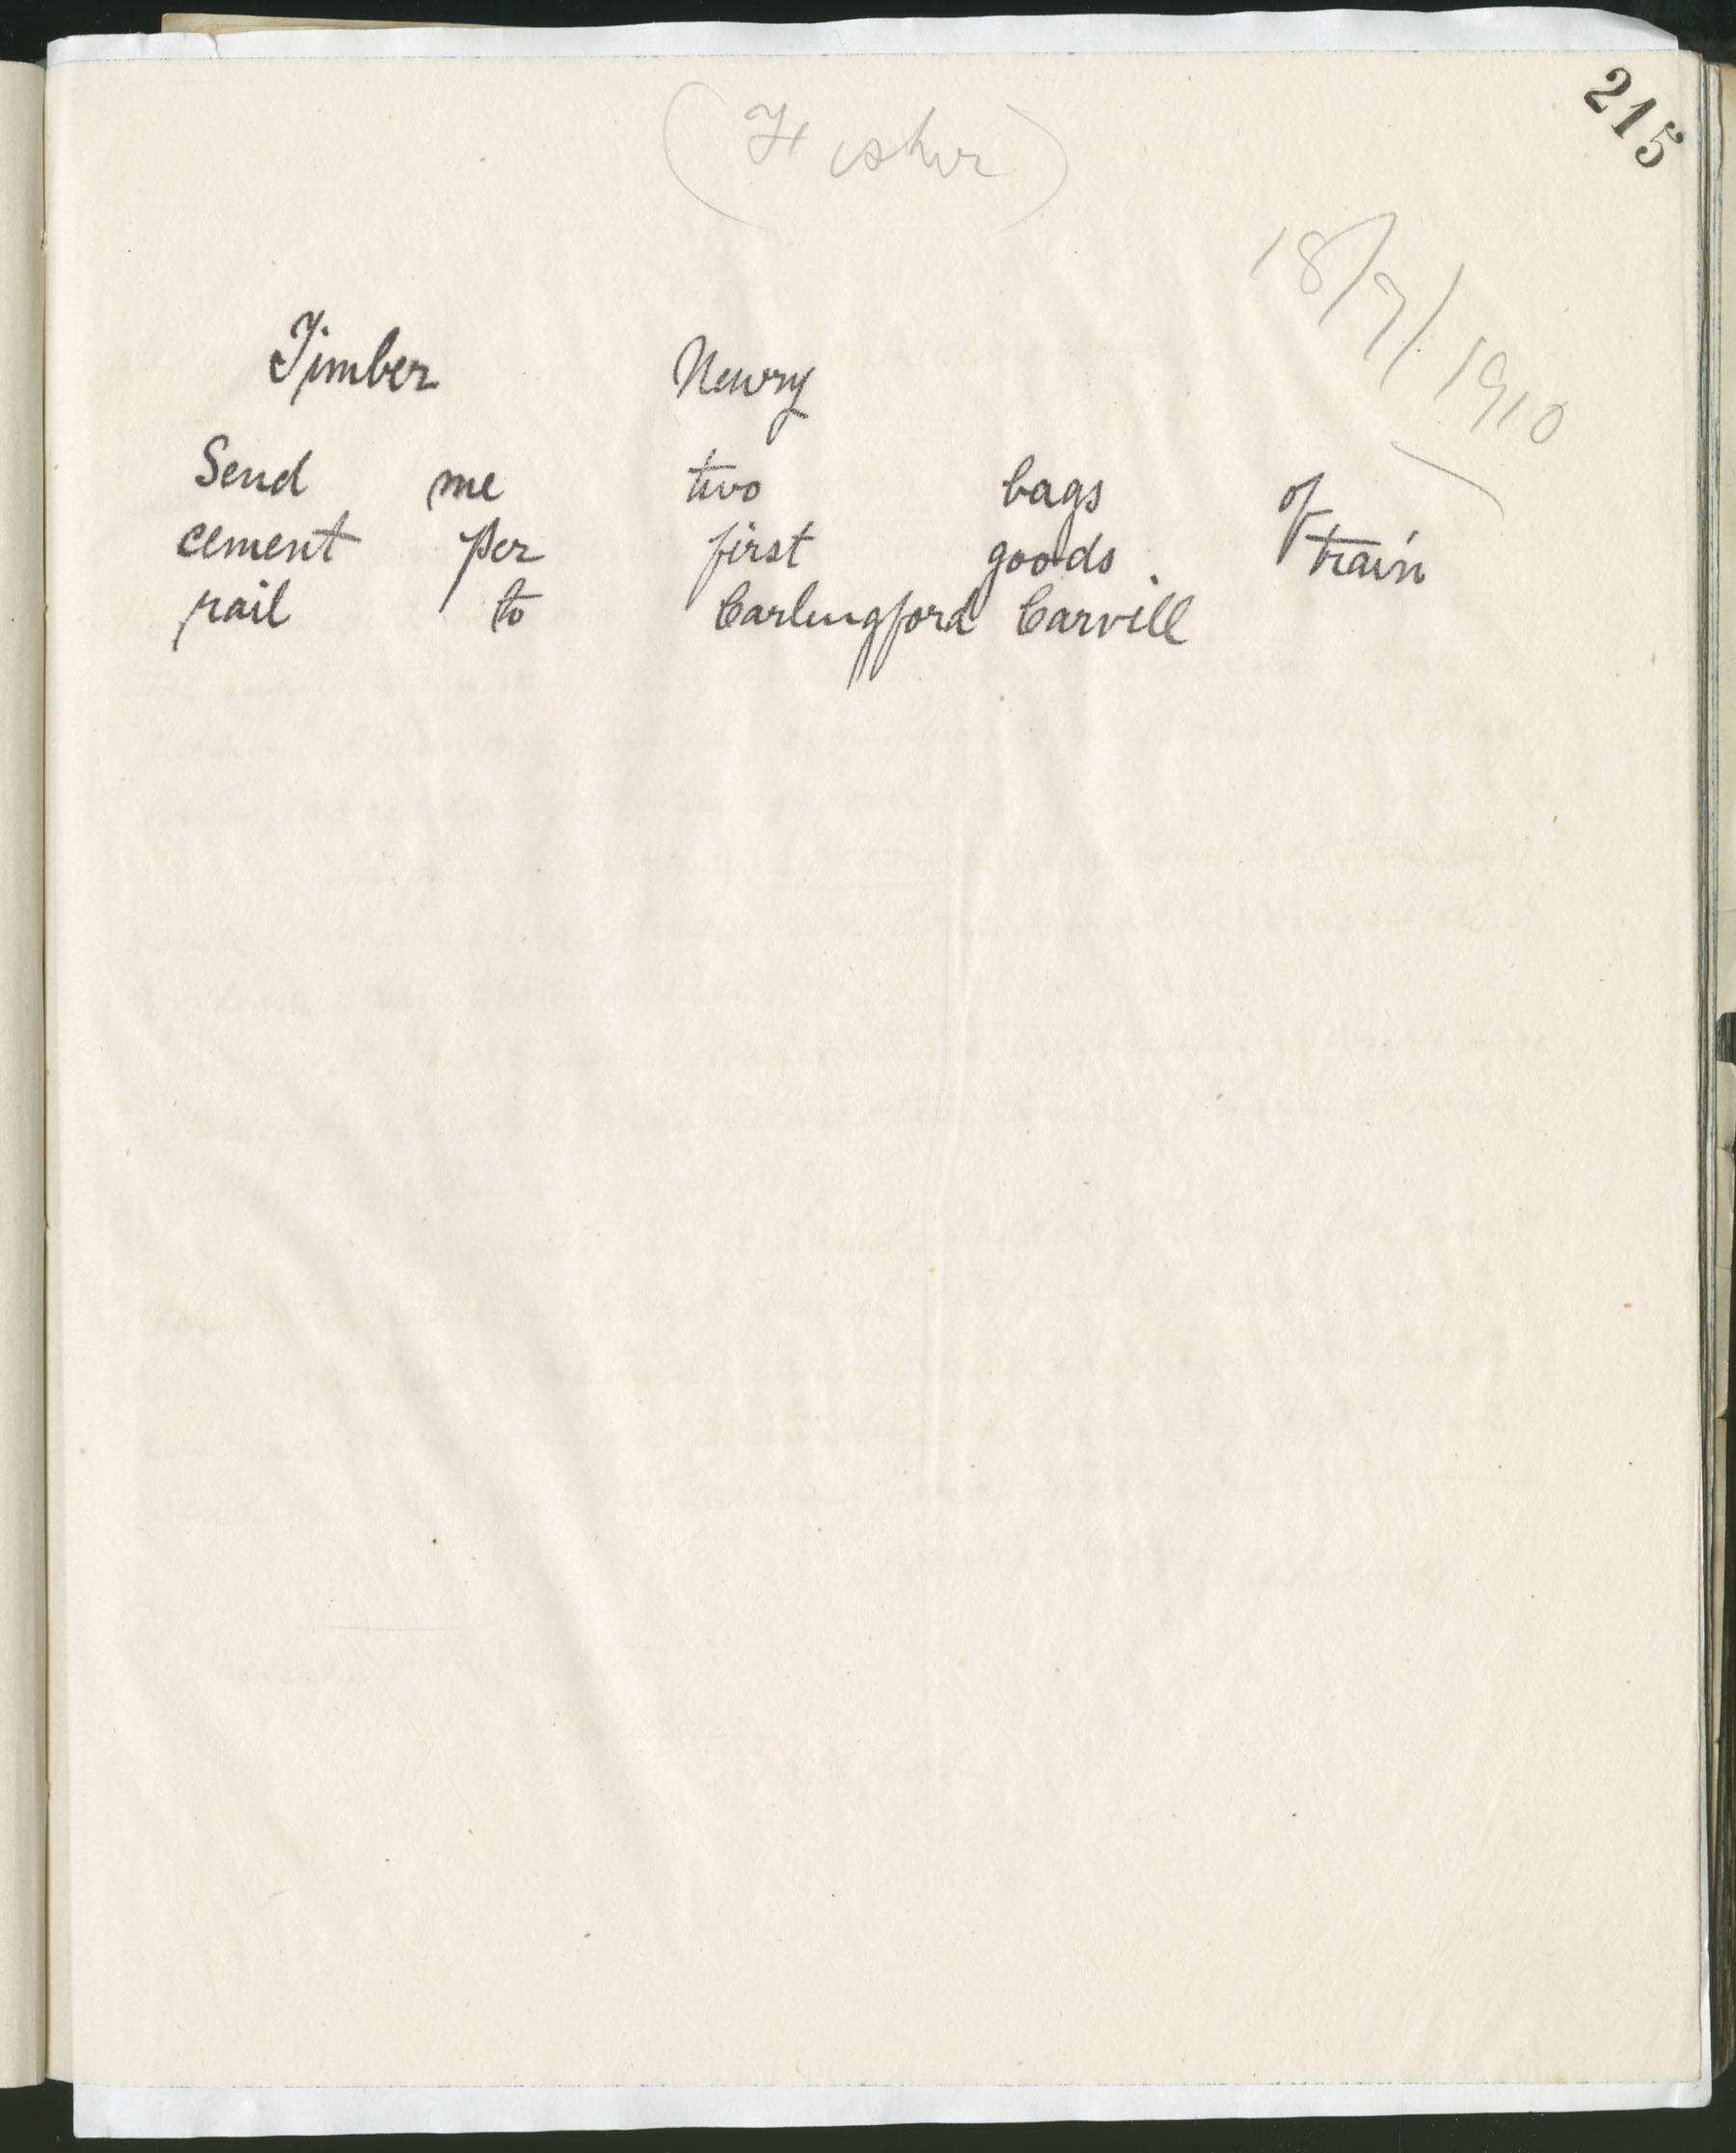 215
(Fisher)
18/7/1910
Timber Newry
Send me two bags of
cement per first goods train
rail to Carlingford Carvill